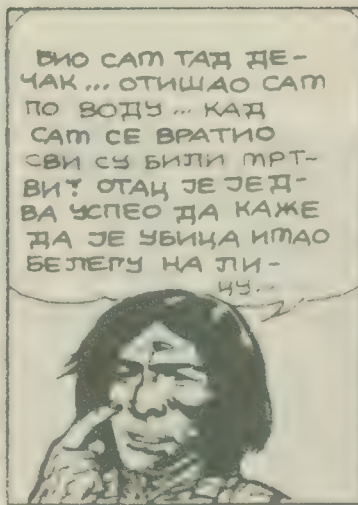 БИО САМ ТАД ДЕ-
ЧАК... ОТИШАО САМ
ПО ВОДУ... КАД
САМ СЕ ВРАТИО
СВИ СУ БИЛИ МРТ-
ВИ! ОТАЦ ЈЕ ЈЕД-
ВА УСПЕО ДА КАЖЕ
ДА ЈЕ УБИЦА ИМАО
БЕЛЕГУ НА ЛИ-
ЦУ...